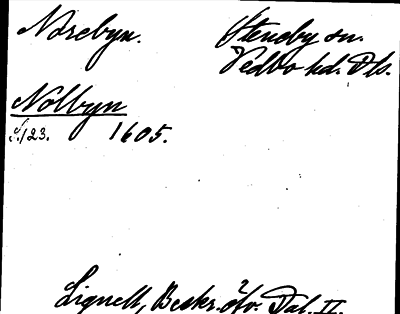 Norebyn. Steneby sn.
Vedbo hd. Dls.
Nolbyn
s. 123. 1605.
Lignell, Beskr. öfv. Dal. II.